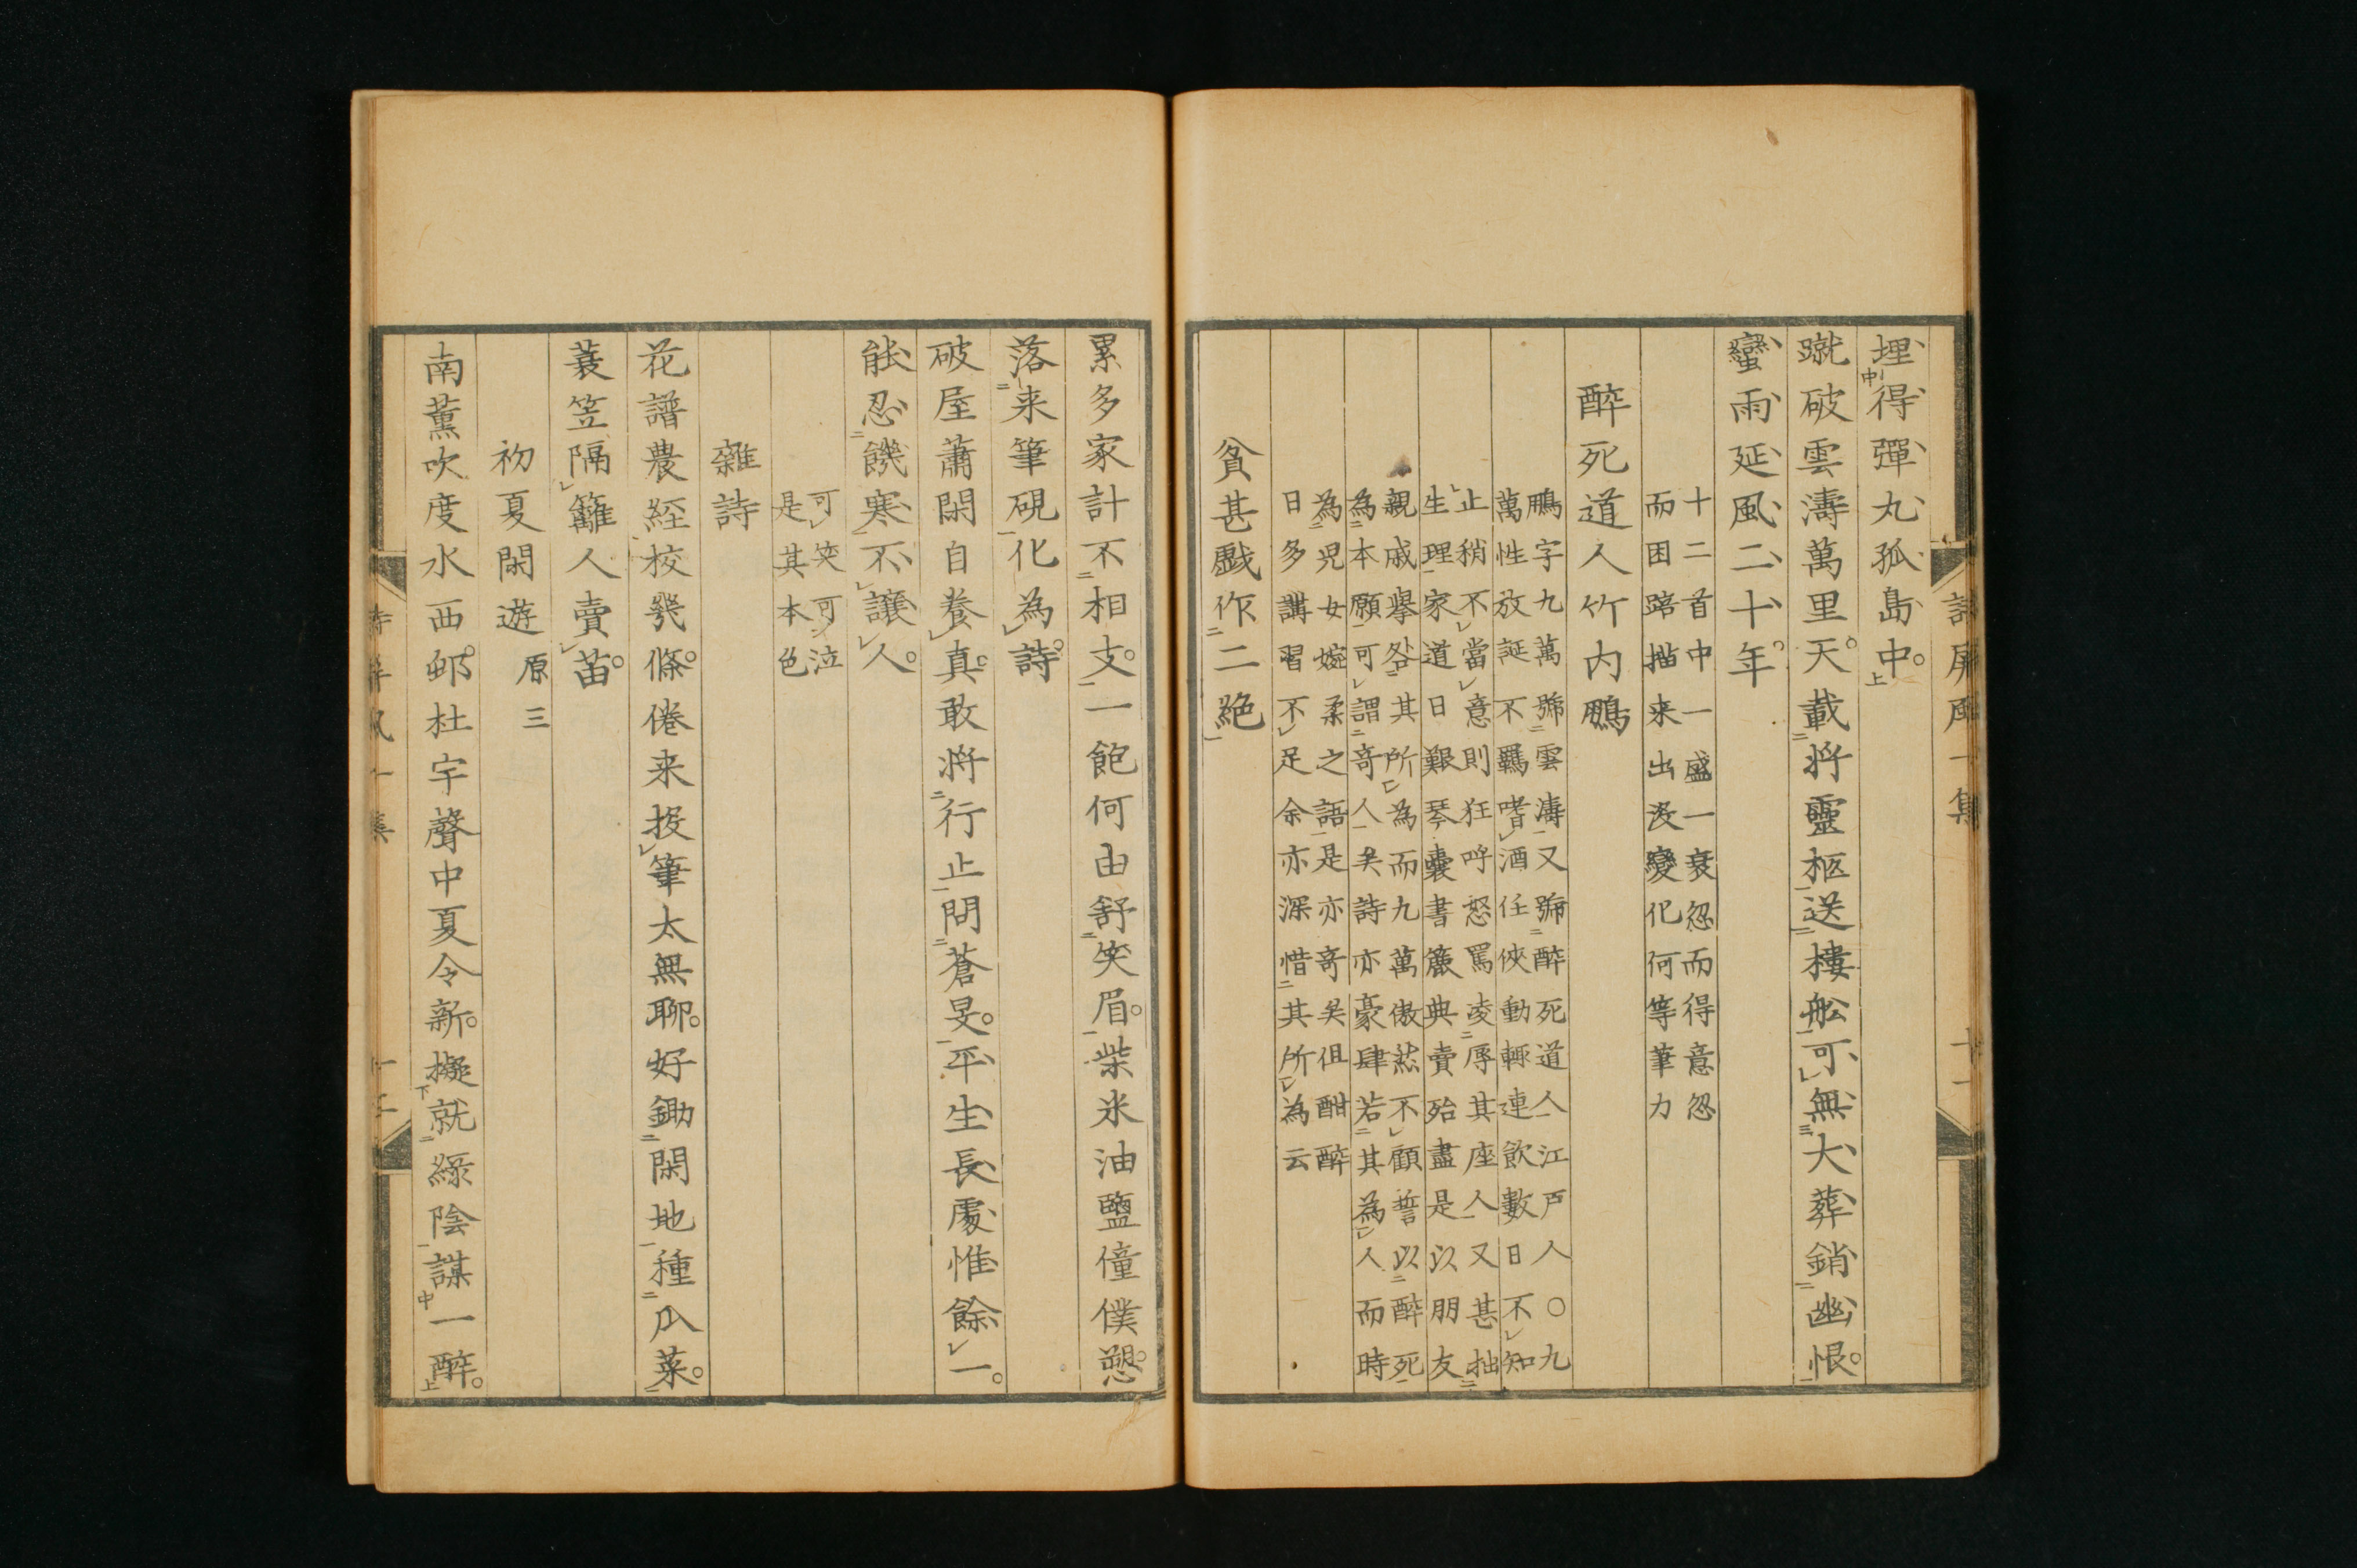 詩屏風一集
埋得彈丸孤島中
蹴破雲濤萬里天載將靈柩送樓船可無大葬銷幽恨
蠻雨延風二十年
十二首中一盛一衰忽而得意忽
而困踣描来出没變化何等筆力
醉死道人竹内鵬
鵬字九萬號雲濤又號醉死道人江戸人○九
萬性放誕不羈嗜酒任俠動輒連飲數日不知
止稍不當意則狂呼怒罵凌辱其座人又甚拙
生理家道日艱琴囊書簏典賣殆盡是以朋友
親戚擧咎其所為而九萬傲然不顧誓以醉死
為本願可謂奇人矣詩亦豪肆若其為人而時
為兒女婉柔之語是亦奇矣但酣醉
日多講習不足余亦深惜其所為云
貧甚戲作二絶
累多家計不相支一飽何由舒笑眉柴米油鹽僮僕愬
落来筆硯化為詩
破屋蕭閑自養真敢將行止問蒼旻平生長處惟餘一
能忍饑寒不讓人
可笑可泣
是其本色
雜詩
花譜農經校幾條倦来投筆太無聊好鋤閑地種瓜菜
蓑笠隔籬人賣苗
初夏閑遊 原三
南薰吹度水西邨杜宇聲中夏令新擬就綠陰謀一醉